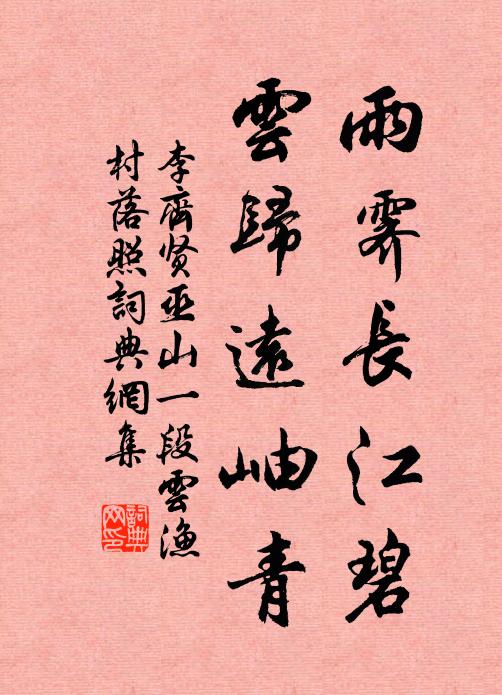 雨霽長江碧
雲歸遠岫青
李齊贤巫山一段雲渔
村落照詞典網集
詞典网印